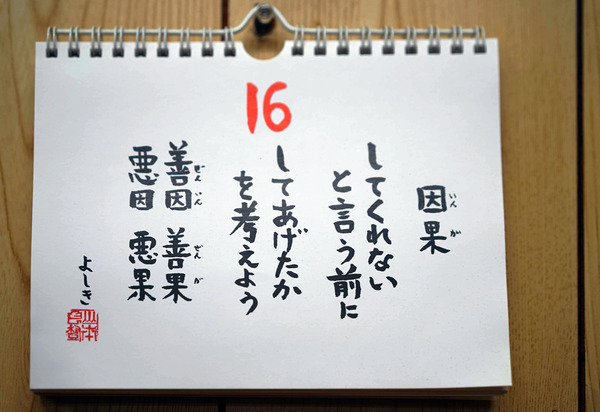 16
因果
いんが
してくれない
と言う前に
してあげたか
を考えよう
善因 善果
ぜんいん ぜんが
悪因 悪果
よしき